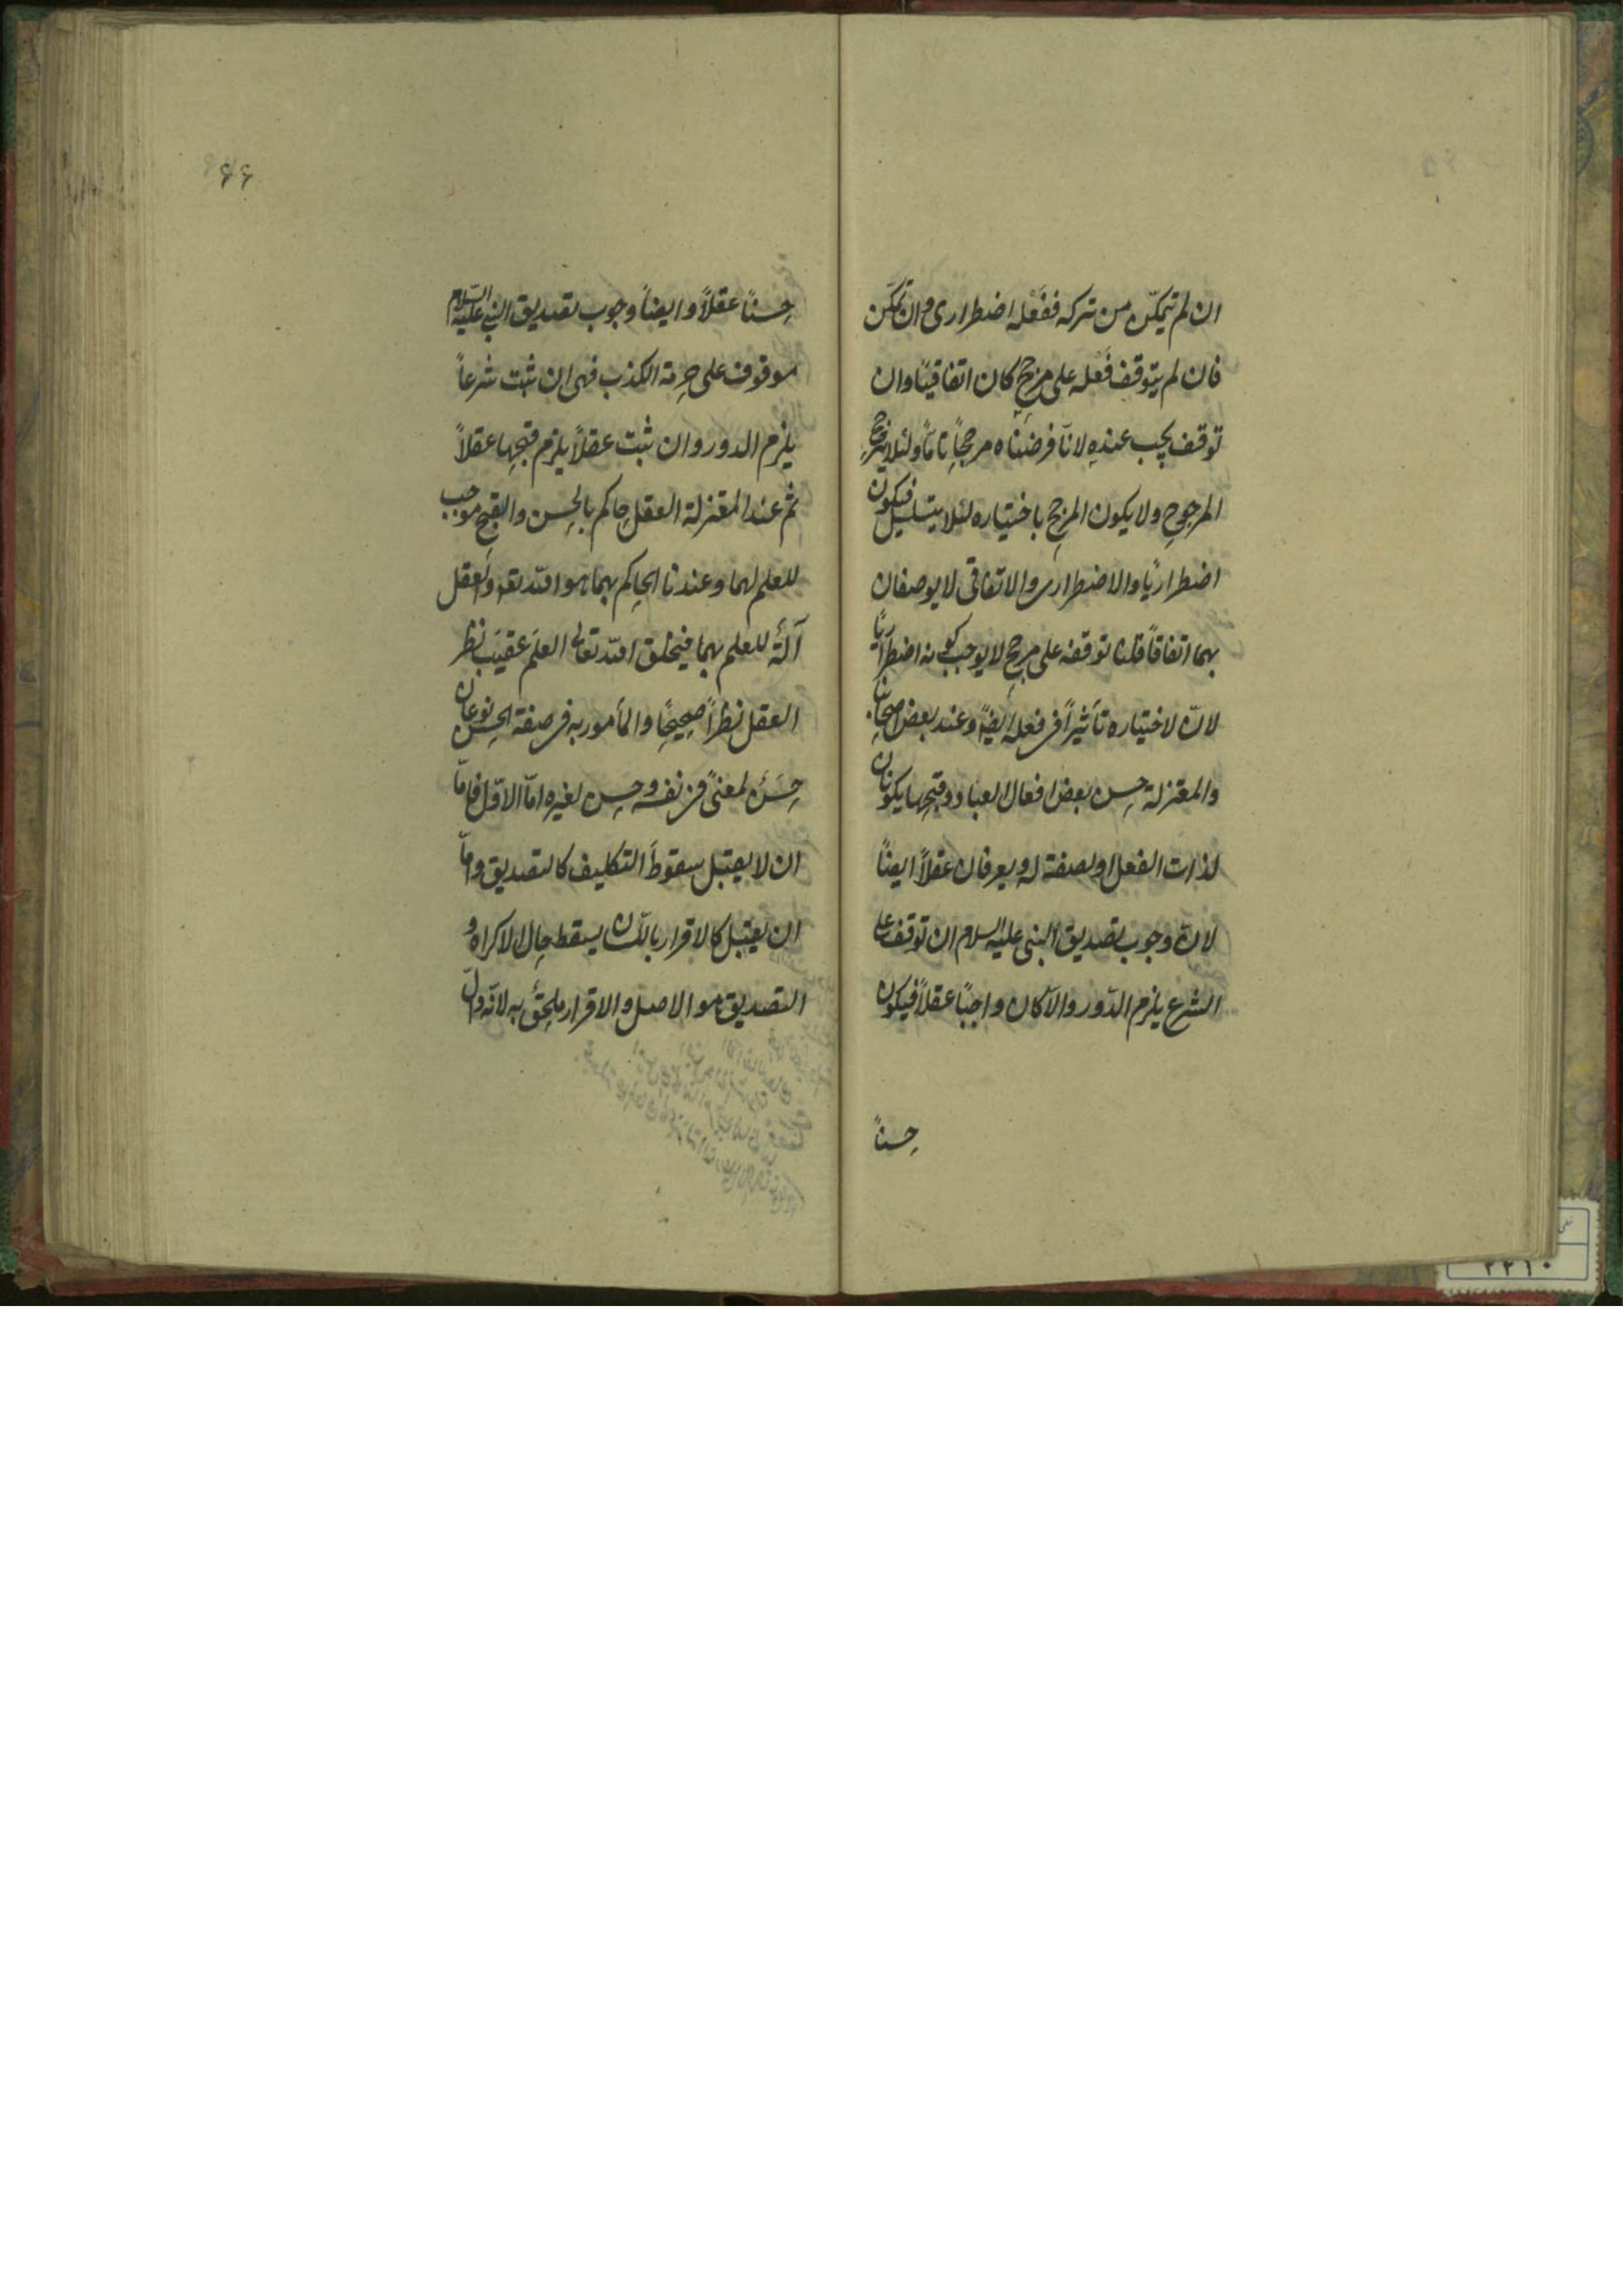 ان لم يتمكّن من تركه ففعله اضطرارى وان تمكّن
فان لم يتوقف فعله على مرجح كان اتفاقيًا وان
توقف يجب عنده لانّا فرضناه مرجحًا تامًّا ولئلا يترجح
المرجوح ولا يكون المرجح باختياره لئلا يتسلسل فيكون
اضطراريًا والاضطرارى والاتفاقى لا يوصفان
بهما اتفاقًا قلنا توقفه على مرجح لا يوجب كونه اضطراريًا
لانّ لاختياره تأثيرًا فى فعله ايضًا وعند بعض اصحابنا
والمعتزلة حسن بعض افعال العباد وقبحها يكونان
لذات الفعل او لصفة له ويعرفان عقلاً ايضًا
لانّ وجوب تصديق النبى عليه السلام ان توقف على
الشرع يلزم الدّور والّا كان واجبًا عقلاً فيكون
حسنًا
۶۶
حسنًا عقلاً وايضًا وجوب تصديق النبى عليه السلام
موقوف على حرمة الكذب فهى ان ثبت شرعاً
يلزم الدور وان ثبت عقلاً يلزم قبحها عقلاً
ثم عند المعتزلة العقل حاكم بالحسن والقبح موجب
للعلم بهما وعندنا الحاكم بهما هو الله تعالى والعقل
آلة للعلم بهما فيخلق الله تعالى العلم عقيب نظر
العقل نظرًا صحيحًا والمأمور به فى صفة الحسن نوعان
حسن لمعنى فى نفسه وحسن لغيره امّا الاوّل فامّا
ان لا يقبل سقوط التكليف كالتصديق وامّا
ان يقبل كالاقرار باللّسان يسقط حال الاكراه و
التصديق هو الاصل والاقرار ملحق به لانّه دالّ
٢٢١٠